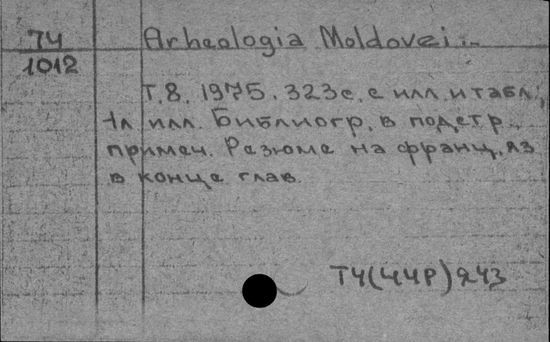 74
1012
Arheologia Moldovei...
Т. 8. 1975. 323с. с илл. и табл.;
1л илл. Библиогр. в подстр.
примеч. Резюме на франц. яз
в конце глав.
Т4(44Р)243